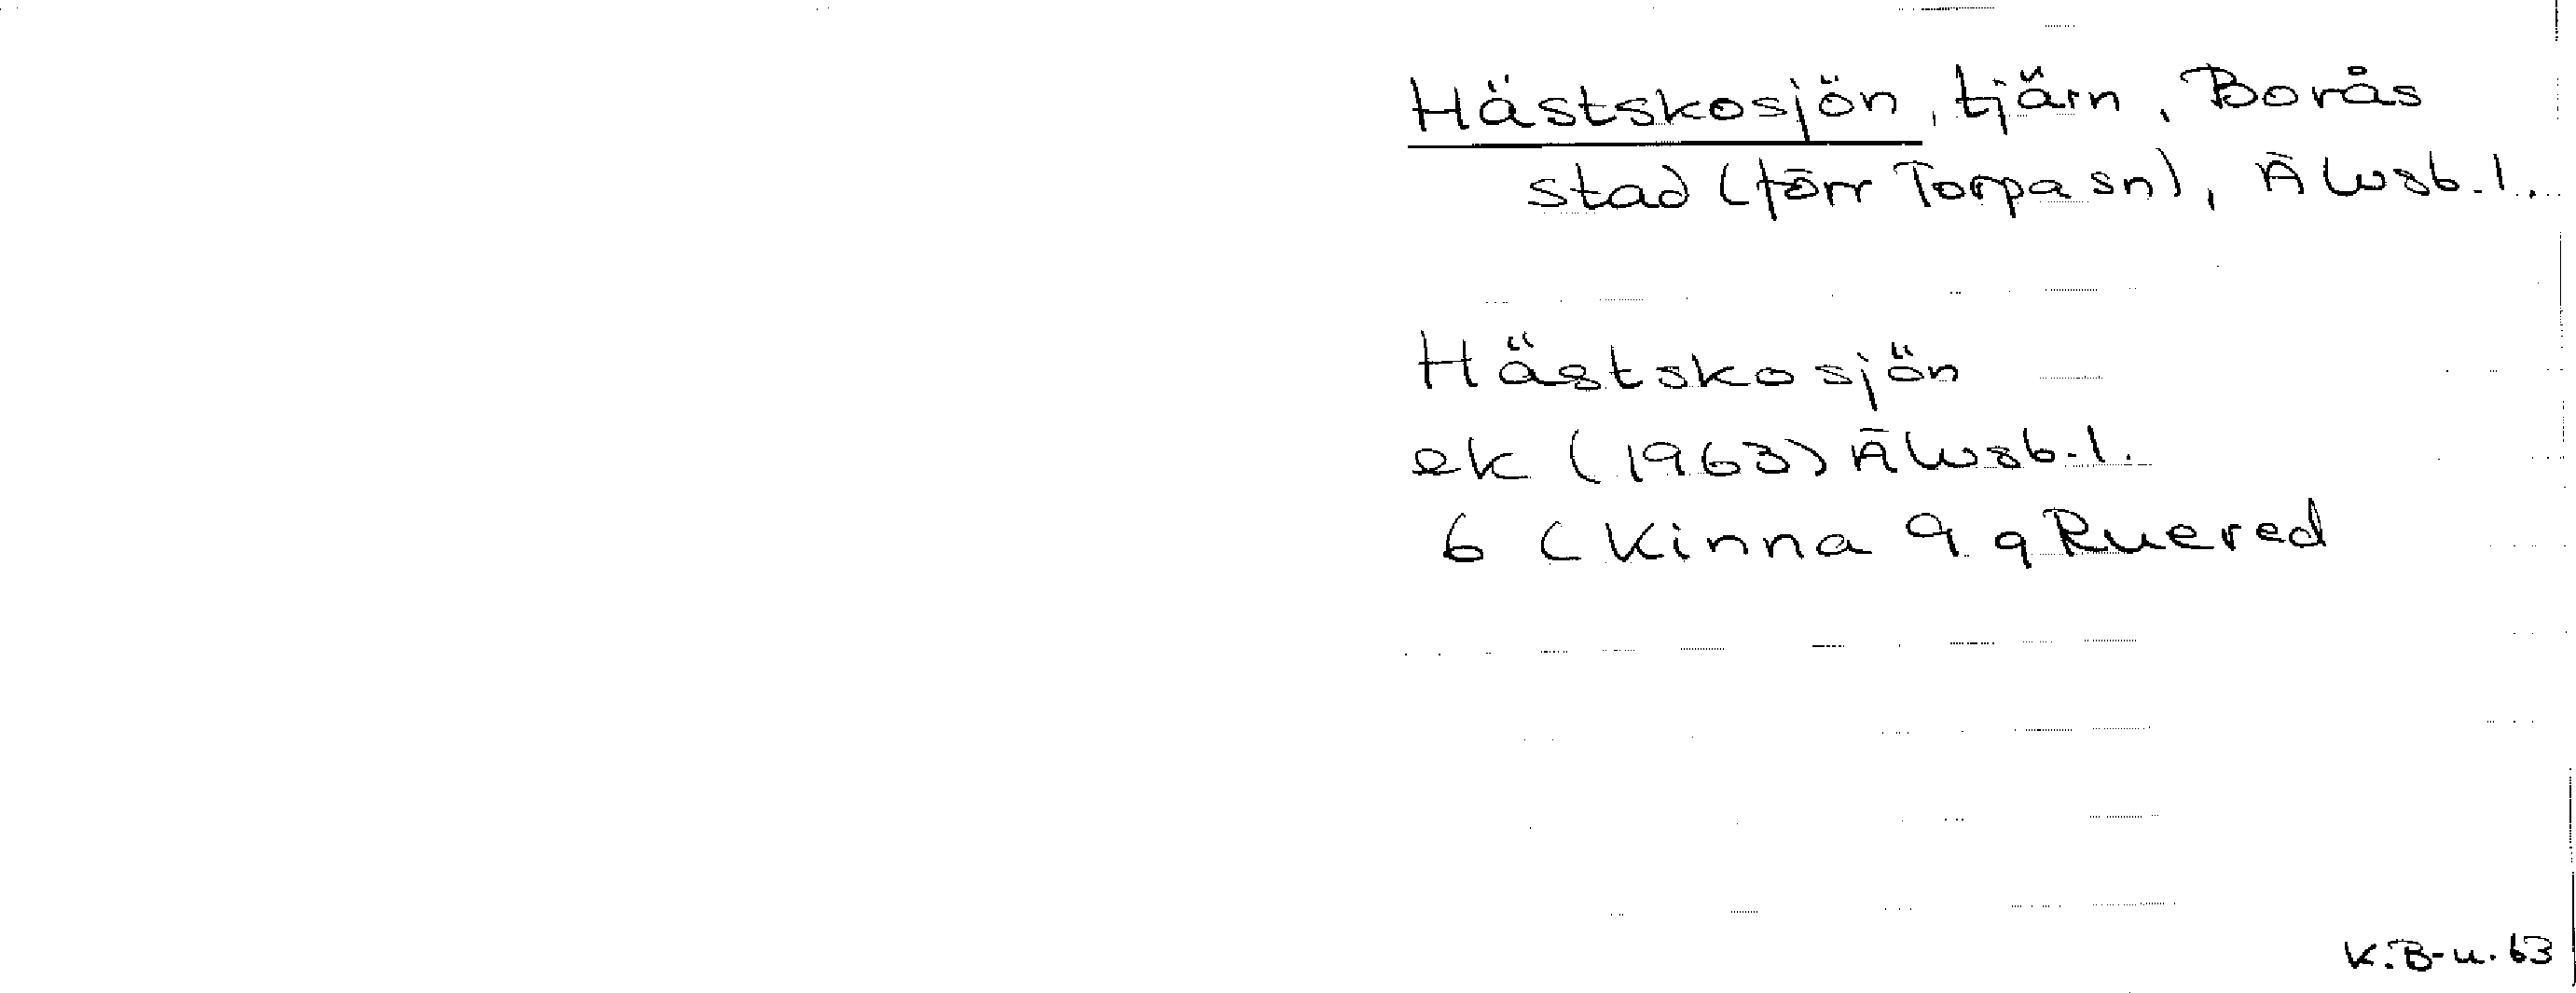 Hästskosjön, tjärn, Borås
stad (förr Torpa sn), Älvsb. l.
Hästskosjön
ek (1963) Älvsb. l.
6 C Kinna 9 g Ruered
K.B-u. 63